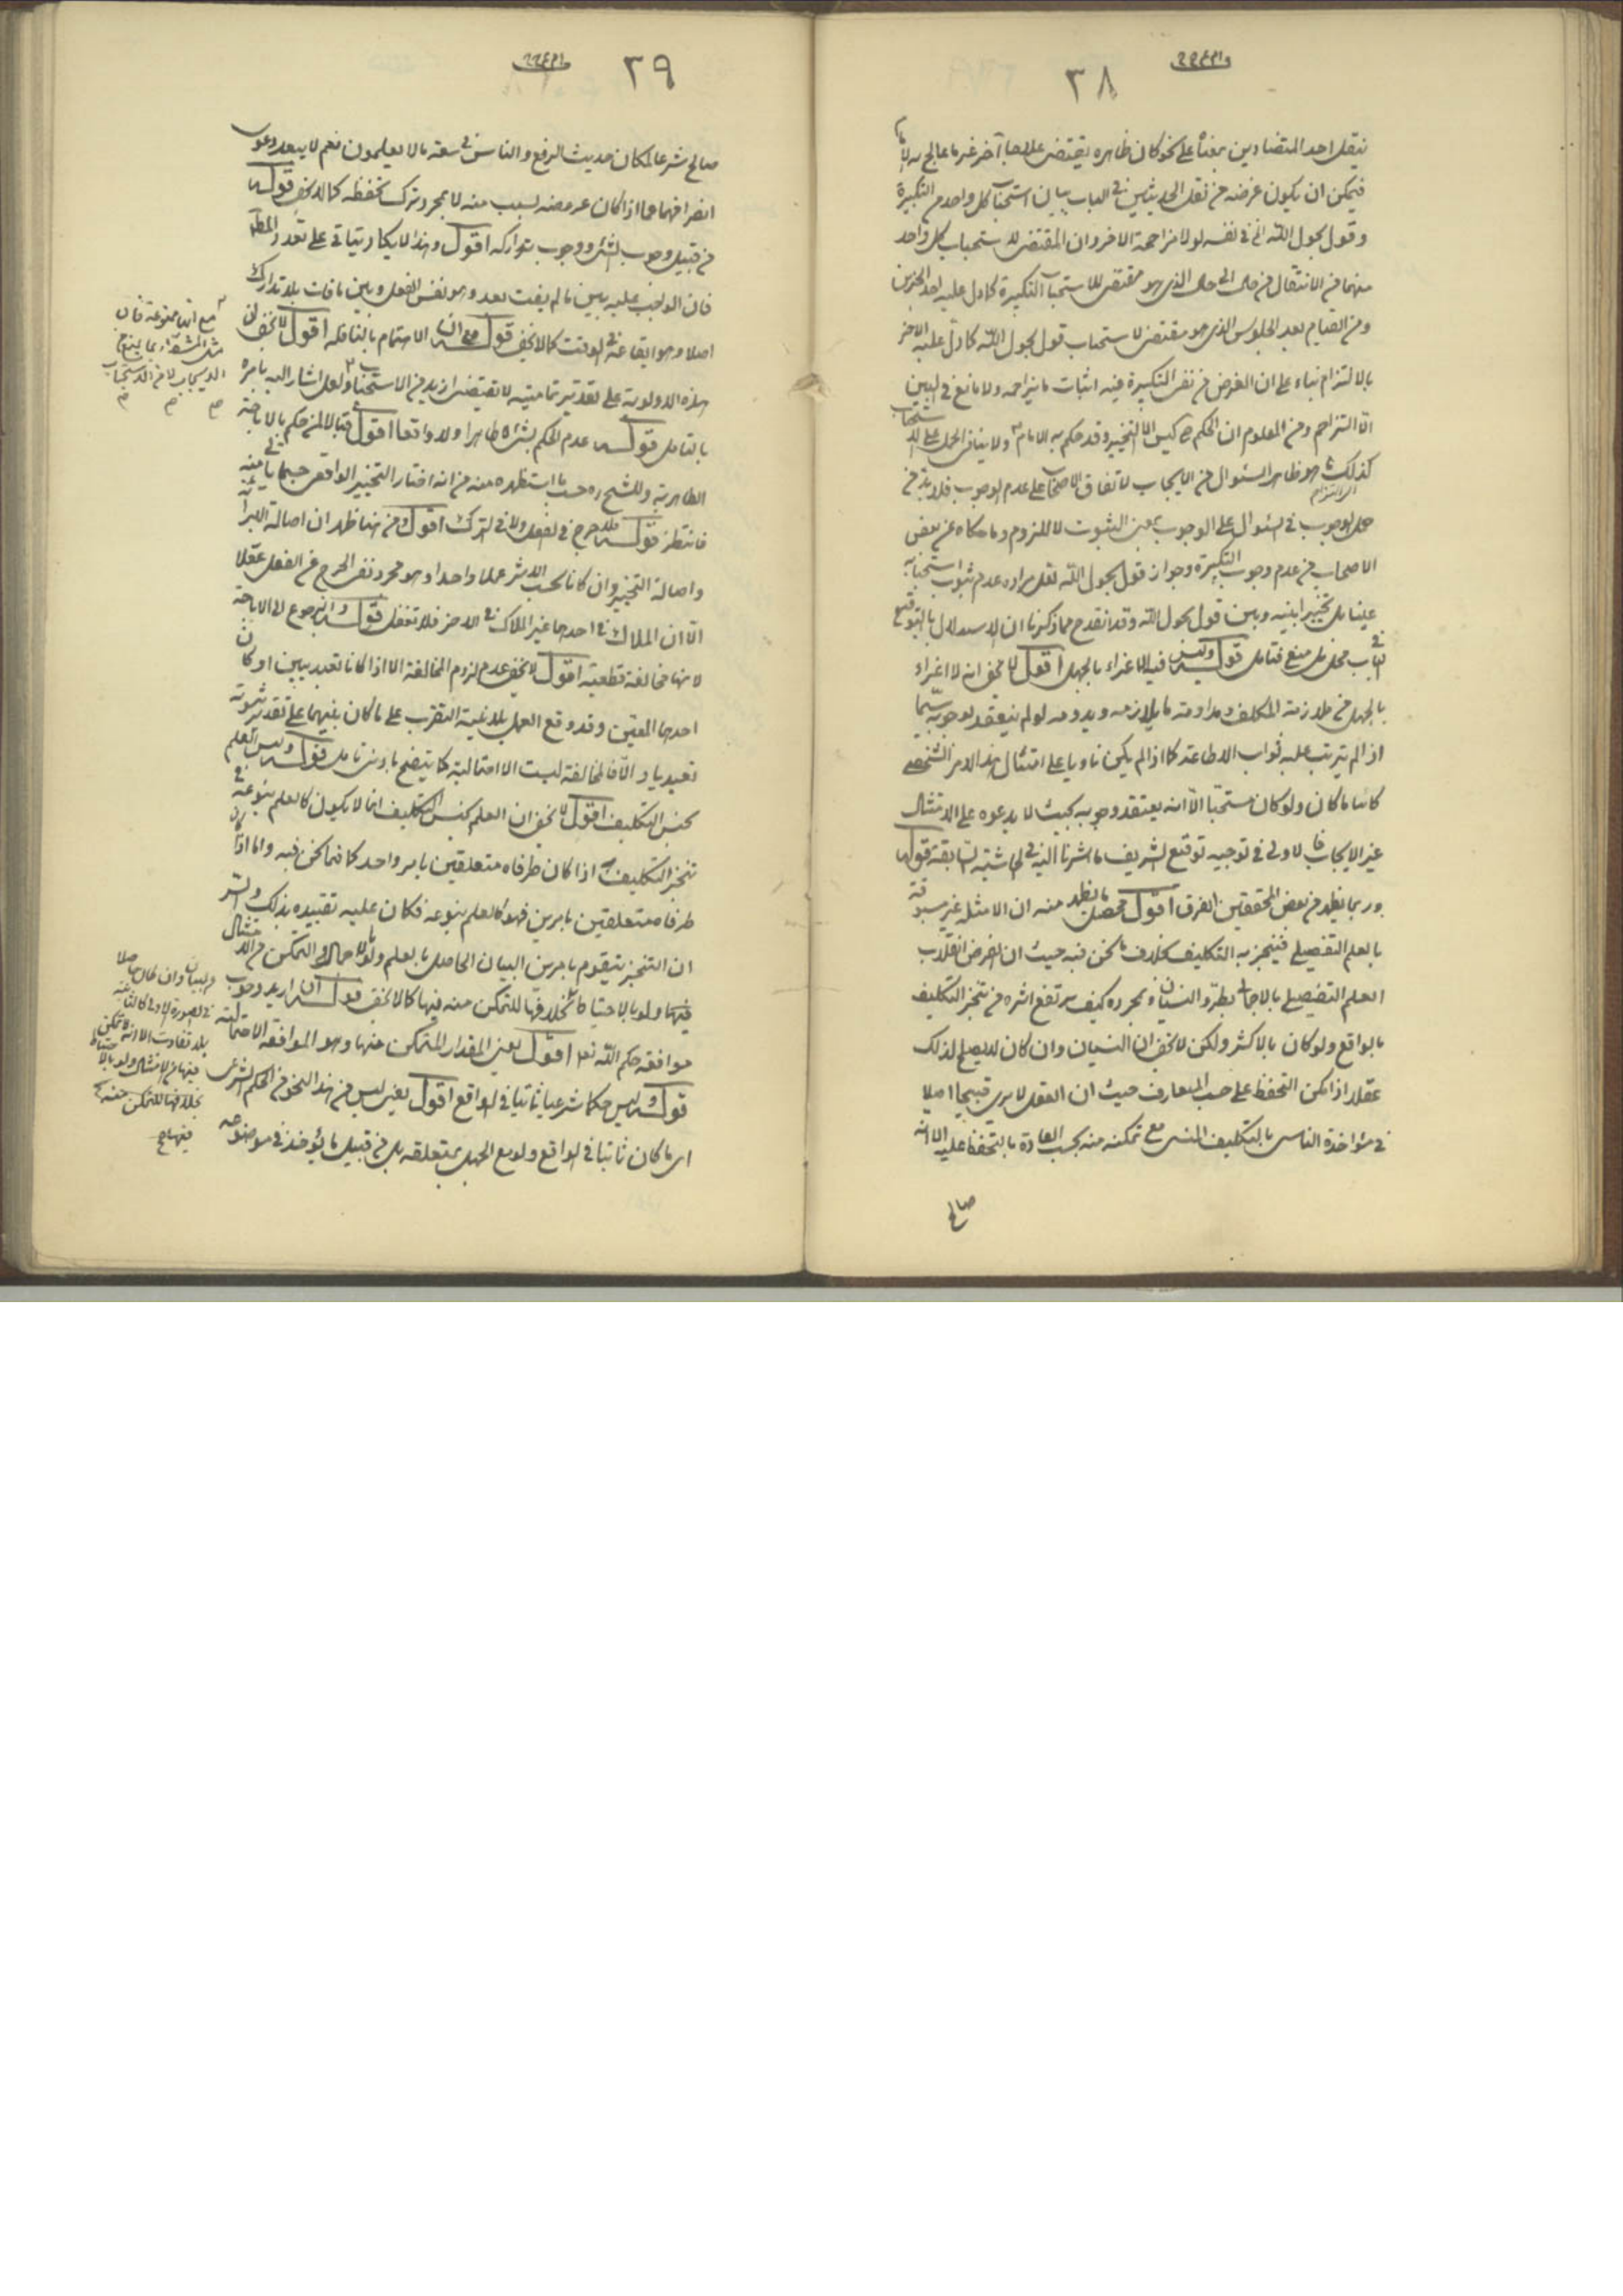 ٣٨
ينقل احد المتضادين بمعناه على نحو كان ظاهره يقتضى علاجا آخر غير ما عالج به الامام
فيمكن ان يكون غرضه من نقل الحديثين فى الباب بيان استحباب كل واحد من التكبيرة
وقول بحول الله الخ فى نفسه لولا مزاحمة الآخر وان المقتضى لاستحباب كل واحد
منهما من الانتقال من حال الى حال الذى هو مقتضى للاستحباب التكبيرة كما دل عليه احد الخبرين
ومن القيام بعد الجلوس الذى هو مقتضى لاستحباب قول بحول الله كما دل عليه الآخر
بالالتزام بناء على ان الغرض من نفى التكبيرة فيه اثبات ما يزاحمه ولا مانع فى البين
الا التزاحم ومن المعلوم ان الحكم ح ليس الا التخيير وقد حكم به الامام ولا ينافى الحمل على الاستحباب
كذلك ما هو ظاهر السئوال من الايجاب لاتفاق الاصحاب على عدم الوجوب فلا بد من
حمل الوجوب فى السئوال على الوجوب بمعنى الثبوت لا اللزوم وما حكاه عن بعض
الاصحاب من عدم وجوب التكبيرة وجواز قول بحول الله لعل مراده عدم ثبوت استحبابه
علينا بل تخيير ابينه وبين قول بحول الله وقد انقدح مما ذكرنا ان الاستدلال بالتوقيع
فى الباب محل بل منع فتامل قوله وليس فيه الاغراء بالجهل اقول لا يخفى انه لا اغراء
بالجهل من ملازمة المكلف ومداومته ما يلازمه ويدومه لو لم يعتقد بوجوبه سيما
اذا لم يترتب عليه ثواب الاطاعة كما اذا لم يكن ناويا على امتثال هذا الامر الشخصى
كائنا ما كان ولو كان مستحبا الا انه يعتقد وجوبه بحيث لا يدعوه على الامتثال
غير الايجاب فالاولى فى توجيه توقيع الشريف ما اشرنا اليه فى الحاشية السابقة قوله
وربما يظهر من بعض المحققين الفرق اقول محصل ما يظهر منه ان الامثلة غير مسبوقة
بالعلم التفصيلى فينجز به التكليف بخلاف ما نحن فيه حيث ان المفرض انقلاب
العلم التفصيلى بالاجمالى بطرو النسيان وبمجرده كيف يرتفع اثره من تنجز التكليف
بالواقع ولو كان بالاكثر ولكن لا يخفى ان النسيان وان كان لا يصلح لذلك
عقلا اذا امكن التحفظ على حسب المتعارف حيث ان العقل لا يرى قبيحا اصلا
فى مؤاخذة الناسى بالتكليف المنسى مع تمكنه منه بحسب العادة بالتحفظ عليه الا انه
صالح
٣٩
صالح شرعا لمكان حديث الرفع والناس فى سعة ما لا يعلمون نعم لا يبعد دعوى
انصرافهما عما اذا كان عروضه بسبب منه لا بمجرد ترك تحفظه كما لا يخفى قوله
من قبيل وجوب الشىء ووجوب تداركه اقول وهذا لا يكاد يتاتى على تعدد المطلوب
فان الواجب عليه بين ما لم يفت بعد وهو نفس الفعل وبين ما فات بلا تدارك
اصلا وهو ايقاعه فى الوقت كما لا يخفى قوله مع ان الاهتمام بالنافلة اقول لا يخفى ان
هذه الاولوية على تقدير تماميته لا تقتضى ازيد من الاستحباب ولعله اشار اليه بامره
بالتامل قوله عدم الحكم بشىء ظاهرا ولا واقعا اقول قبالا لمن حكم بالاباحة
الظاهرية وللشيخ ره حسب ما استظهره منه من انه اختار التخيير الواقعى حسبما ياتى منه
فانتظر قوله فلا حرج فى الفعل ولا فى الترك اقول ومن هنا ظهر ان اصالة البرائة
واصالة التخيير وان كانا بحسب الاثر عملا واحدا وهو مجرد نفى الحرج عن الفعل عقلا
الا ان الملاك فى احدهما غير الملاك فى الآخر فلا تغفل قوله والرجوع الى الاباحة
لانها مخالفة قطعية اقول لا يخفى عدم لزوم المخالفة الا اذا كانا تعبديين او كان
احدهما المعين وقد وقع العمل بلا نية التقرب على ما كان بينهما على تقدير ثبوته
تعبديا والا فالمخالفة ليست الا احتمالية كما يتضح بادنى تامل قوله وليس العلم
بجنس التكليف اقول لا يخفى ان العلم بجنس التكليف انما لا يكون كالعلم بنوعه فى
تنجز التكليف اذا كان طرفاه متعلقين بامر واحد كما فيما نحن فيه واما اذا كان
طرفاه متعلقين بامرين فهو كالعلم بنوعه فكان عليه تقييده بذلك والسر
ان التنجز يتقوم بامرين البيان الحاصل بالعلم ولو بالاجمال والتمكن من الامتثال
فيهما ولو بالاحتياط بخلافها للتمكن منه فيها كما لا يخفى قوله ان اريد وجوب
موافقة حكم الله تعالى اقول يعنى المقدار المتمكن منها وهو الموافقة الاحتمالية
قوله وليس حكما شرعيا ثابتا فى الواقع اقول يعنى ليس من هذا النحو من الحكم الشرعى
اى ما كان ثابتا فى الواقع ولو مع الجهل بمتعلقه بل من قبيل ما يؤخذ فى موضوعه
مع انها ممنوعة فان
الاستحباب لا من الاستحباب
والبيان وان كان حاصلا
فى الصورة الاولى كالثانية
بلا تفاوت الا انه لا تمكن
فيها من الامتثال ولو بالاحتياط
بخلافها للتمكن منه
فيها